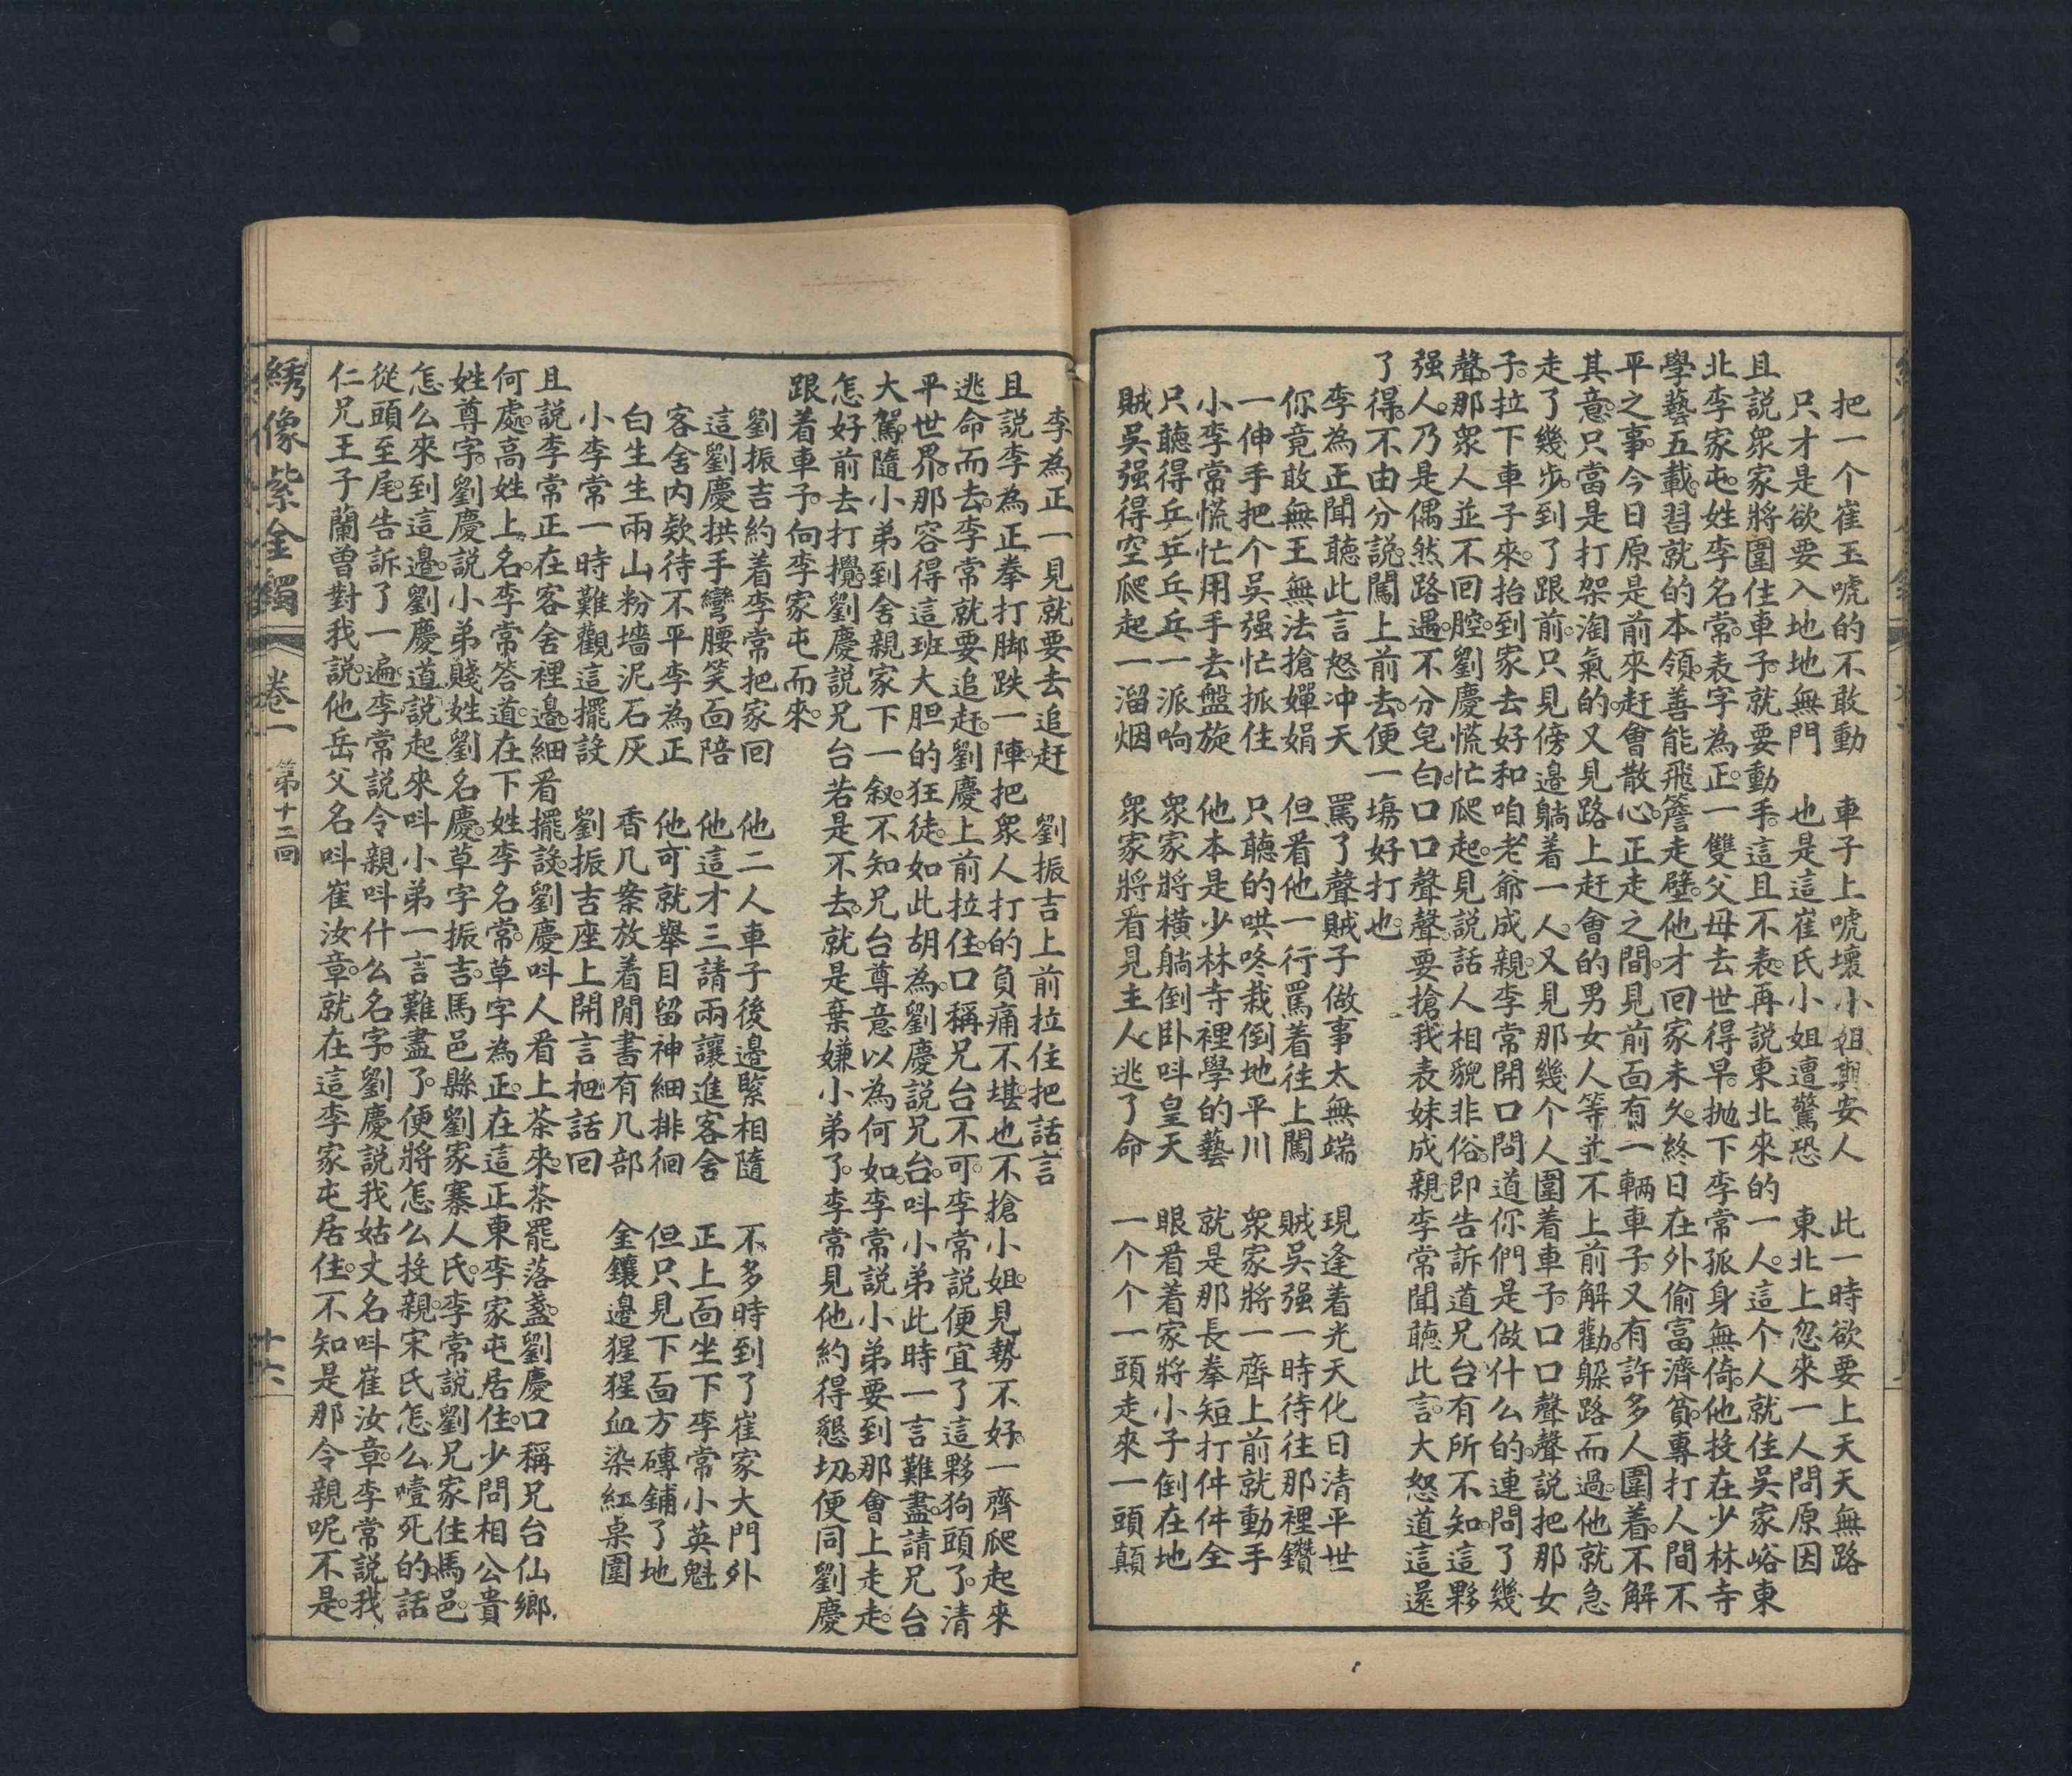 把一个崔玉唬的不敢動　車子上唬壞小姐與安人　此一時欲要上天天無路
只才是欲要入地地無門　也是這崔氏小姐遭驚恐　東北上忽來一人問原因
且說衆家將圍住車子。就要動手。這且不表。再說東北來的一人。這个人就住吳家峪東
北李家屯。姓李名常。表字為正。一雙父母去世得早。抛下李常孤身無倚。他投在少林寺
學藝五載。習就的本領。善能飛簷走壁。他才回家未久。終日在外偷富濟貧。專打人間不
平之事。今日原是前來赶會散心。正走之間。見前面有一輛車子。又有許多人圍着。不解
其意。只當是打架淘氣的。又見路上赶會的男女人等。並不上前解勸。躲路而過。他就急
走了幾步。到了跟前。只見傍邊躺着一人。又見那幾个人圍着車子。口口聲聲說把那女
子。拉下車子來。抬到家去好和咱老爺成親。李常開口問道你們是做什么的。連問了幾
聲。那衆人並不回腔。劉慶慌忙爬起。見說話人相貌非俗。即告訴道兄台有所不知。這夥
强人。乃是偶然路遇。不分皂白。口口聲聲。要搶我表妹成親。李常聞聽此言。大怒道這還
了得。不由分説。闖上前去。便一塲好打也。
李為正聞聽此言怒冲天　罵了聲賊子做事太無端　現逢着光天化日清平世
你竟敢無王無法搶嬋娟　但看他一行罵着往上闖　賊吳强一時待往那裡鑽
一伸手把个吳强忙抓住　只聽的哄咚栽倒地平川　衆家將一齊上前就動手
小李常慌忙用手去盤旋　他本是少林寺裡學的藝　就是那長拳短打件件全
只聽得乒乒乓乓一派响　衆家將橫躺倒卧呌皇天　眼看着家將小子倒在地
賊吳强得空爬起一溜烟　衆家將看見主人逃了命　一个个一頭走來一頭顛
李為正一見就要去追赶　劉振吉上前拉住把話言
且說李為正拳打脚跌一陣。把衆人打的負痛不堪。也不搶小姐。見勢不好。一齊爬起來
逃命而去。李常就要追赶。劉慶上前拉住。口稱兄台不可。李常説便宜了這夥狗頭了。清
平世界。那容得這班大胆的狂徒。如此胡為。劉慶説兄台。呌小弟此時一言難盡。請兄台
大駕。隨小弟到舍親家下一叙。不知兄台尊意以為何如。李常説小弟要到那會上走走。
怎好前去打攪。劉慶説兄台若是不去。就是棄嫌小弟了。李常見他約得懇切。便同劉慶
跟着車子。向李家屯而來。
劉振吉約着李常把家回　他二人車子後邊緊相隨　不多時到了崔家大門外
這劉慶拱手彎腰笑面陪　他這才三請兩讓進客舍　正上面坐下李常小英魁
客舍内欵待不平李為正　他可就舉目留神細排徊　但只見下面方磚鋪了地
白生生兩山粉墻泥石灰　香几案放着閒書有几部　金鑲邊猩猩血染紅桌圍
小李常一時難觀這擺設　劉振吉座上開言把話回
且說李常正在客舍裡邊。細看擺設。劉慶呌人看上茶來。茶罷落盞。劉慶口稱兄台仙鄉
何處。高姓上名。李常答道。在下姓李名常。草字為正。在這正東李家屯居住。少問相公貴
姓尊字。劉慶説小弟賤姓劉名慶。草字振吉。馬邑縣劉家寨人氏。李常説劉兄家住馬邑。
怎么來到這邊。劉慶道説起來呌小弟一言難盡了。便將怎么投親。宋氏怎么噎死的話
從頭至尾。告訴了一遍。李常説令親呌什么名字。劉慶説我姑丈名呌崔汝章。李常説我
仁兄王子蘭曾對我説。他岳父名呌崔汝章。就在這李家屯居住。不知是那令親呢不是。
綉像紫金鐲　卷一　第十二回　十六